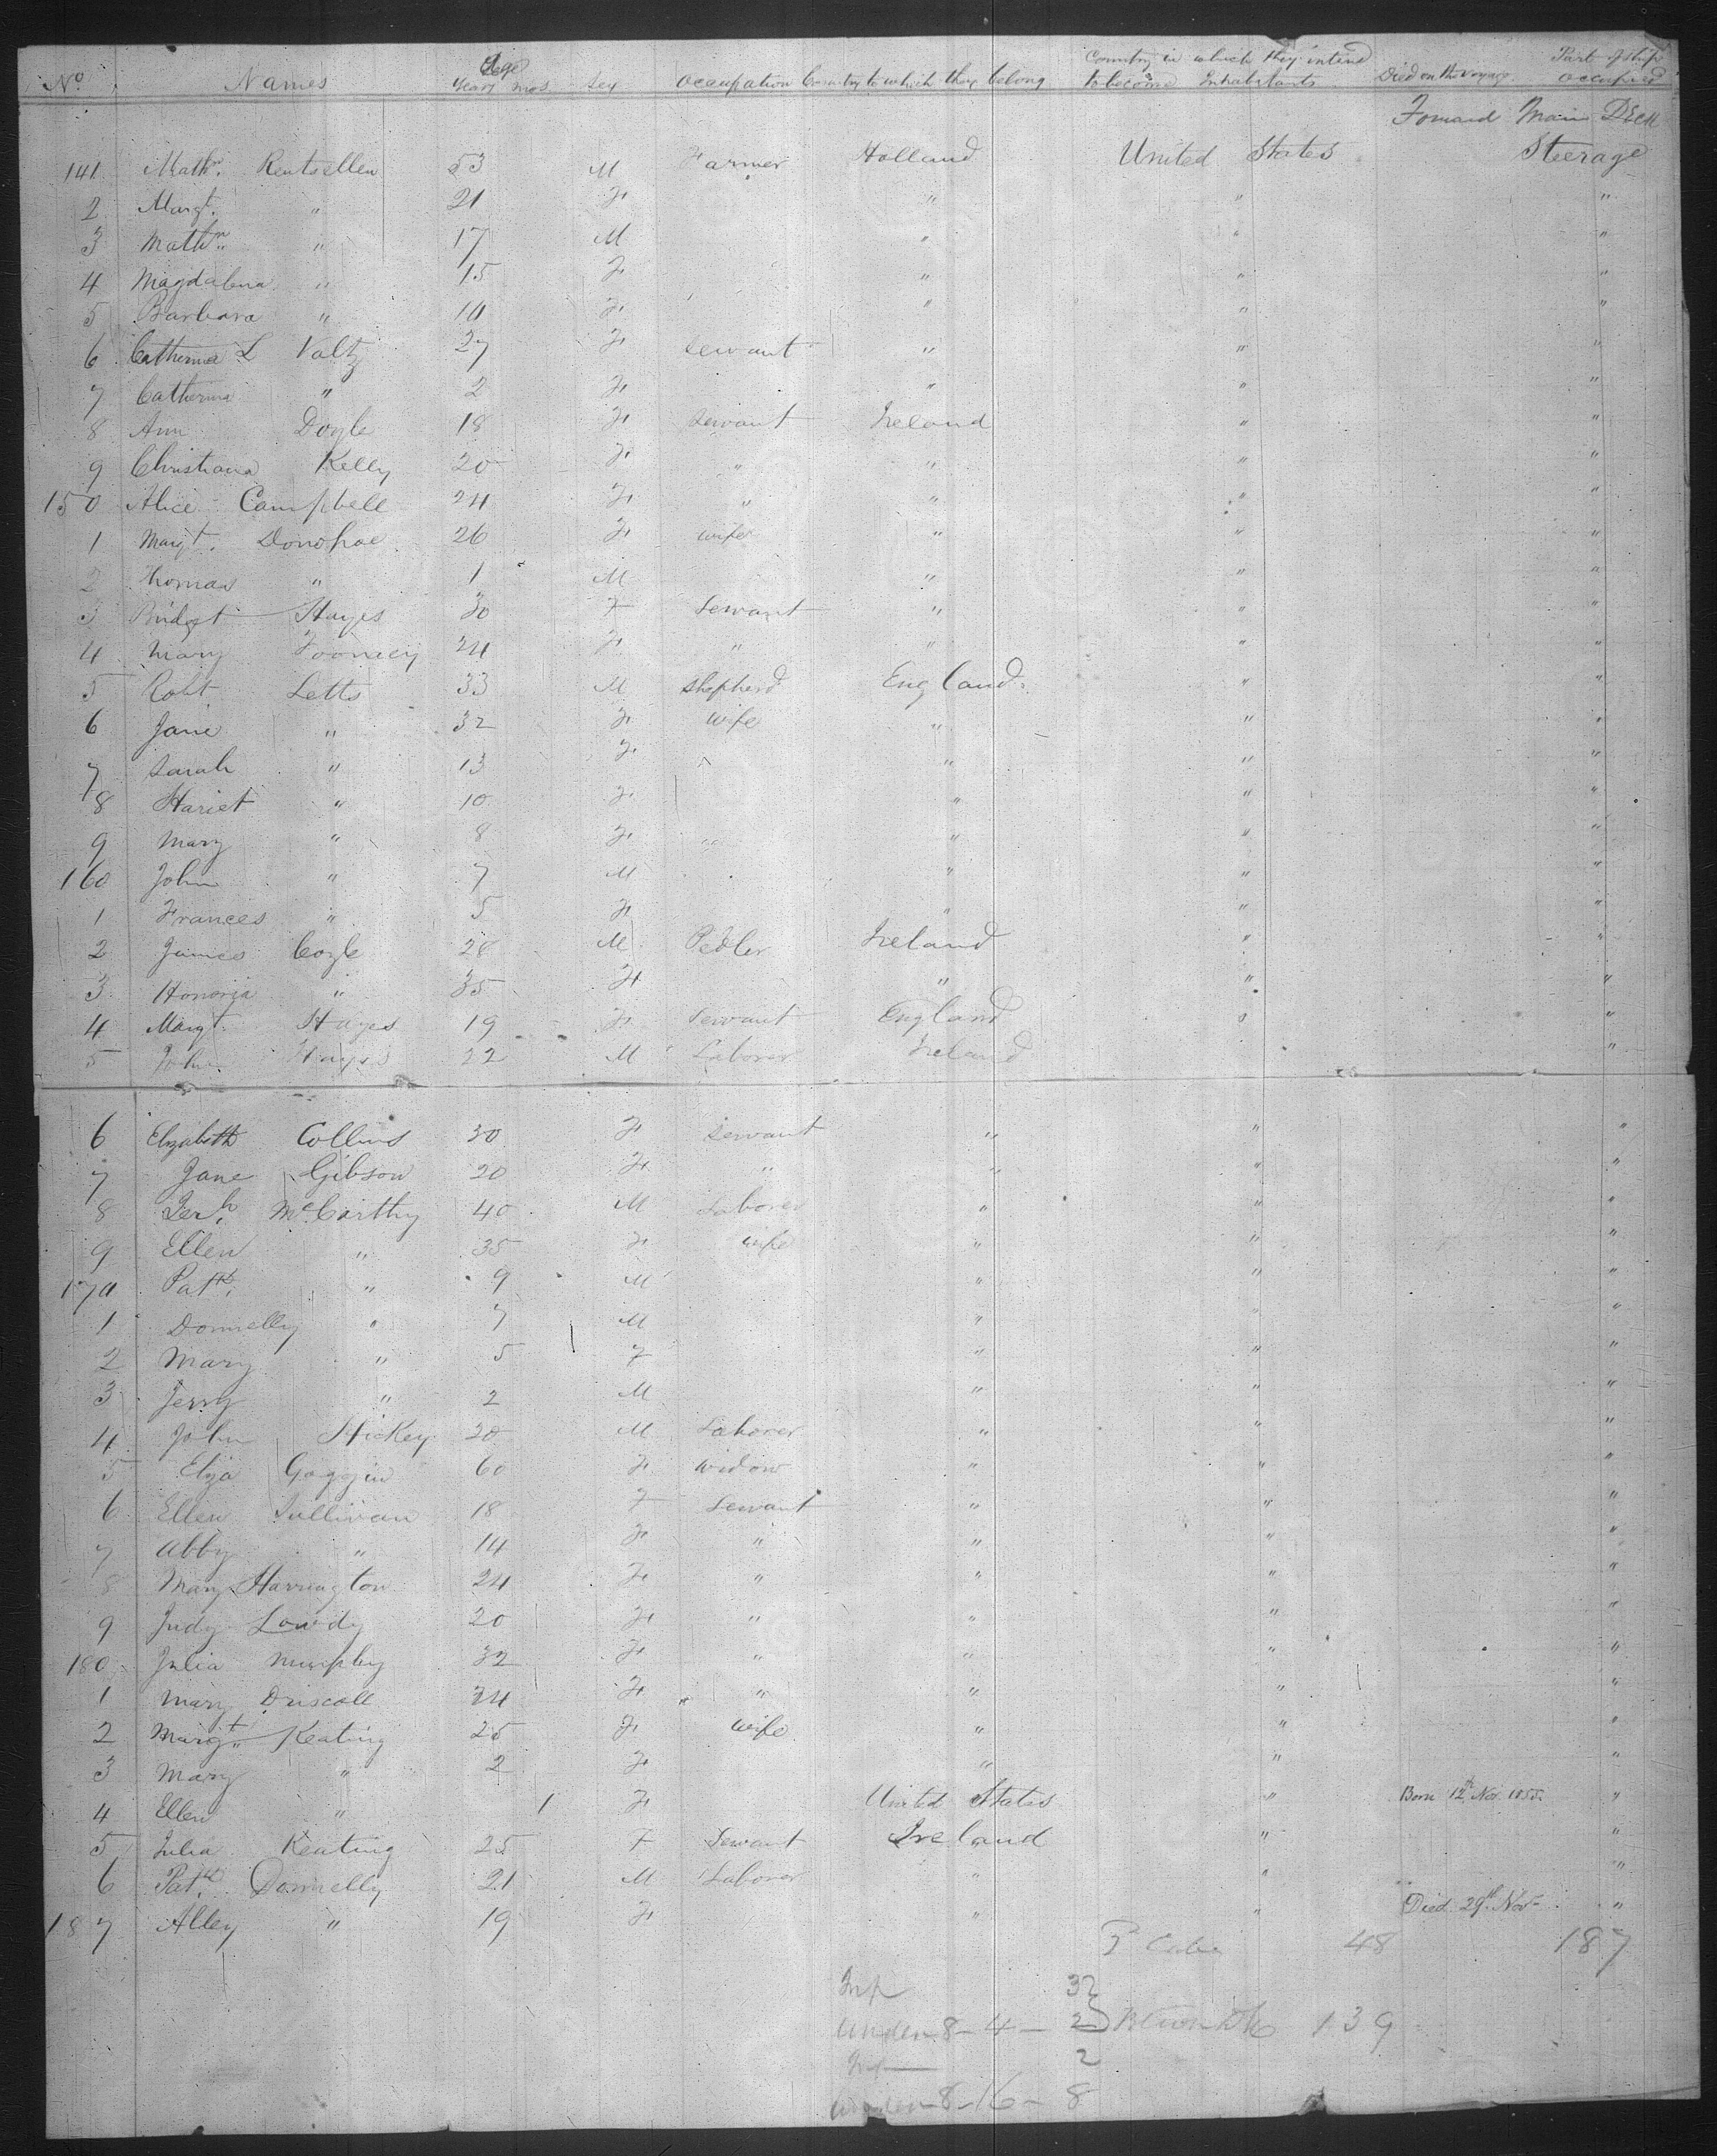 No Names Age Years mos Sex Occupation Country to which they belong Country in which they intend to become Inhabitants Died on the voyage Part of ship occupied
Forward Main Deck
141 Mathw. Rentsellen 53 M Farmer Holland United States Steerage
2 Margt. " 21 F " " "
3 Mathw. " 17 M " " "
4 Magdalena " 15 F " " "
5 Barbara " 10 F " " "
6 Catherina L Valtz 27 F servant " " "
7 Catherina " 2 F " " "
8 Ann Doyle 18 F servant Ireland " "
9 Christiana Kelly 20 F " " " "
150 Alice Campbell 24 F " " " "
1 Margt. Donohoe 26 F wife " " "
2 Thomas " 1 M " " "
3 Bridget Hayes 30 F servant " " "
4 Mary 24 F " " " "
5 Robt Letts 33 M shepherd England " "
6 Jane " 32 F wife " " "
7 Sarah " 13 F " " "
8 Hariet " 10 F " " "
9 Mary " 8 F " " "
160 John " 7 M " " "
1 Frances " 5 F " " "
2 James Coyle 28 M Pedler Ireland " "
3 Honoria " 35 F " " "
4 Margt. Hayes 19 F servant England " "
5 John Hayes 22 M Laborer Ireland "
6 Elizabeth Collins 30 F servant " " "
7 Jane Gibson 20 F " " " "
8 Jerh. McCarthy 40 M Laborer " " "
9 Ellen " 35 F wife " " "
170 Patk. " 9 M " " "
1 Donnelly " 7 M " " "
2 Mary " 5 F " " "
3 Jerry " 2 M " " "
4 John Hickey 20 M Laborer " " "
5 Eliza Goggin 60 F widow " " "
6 Ellen Sullivan 18 F servant " " "
7 Abby " 14 F " " " "
8 Mary Harrington 24 F " " " "
9 Judy Lowdy 20 F " " " "
180 Julia Murphy 32 F " " " "
1 Mary Driscoll 24 F " " " "
2 Margt. Keating 25 F wife " " "
3 Mary " 2 F " " "
4 Ellen " 1 F United States " Born 12th Nov. 1855. "
5 Julia Keating 25 F Servant Ireland " "
6 Patk. Donnelly 21 M Laborer " " "
187 Alley " 19 F " " Died 29th Nov "
48 187
Inf 32
under 8 - 4 - 2 139
Inf 2
under 8 - 16 - 8